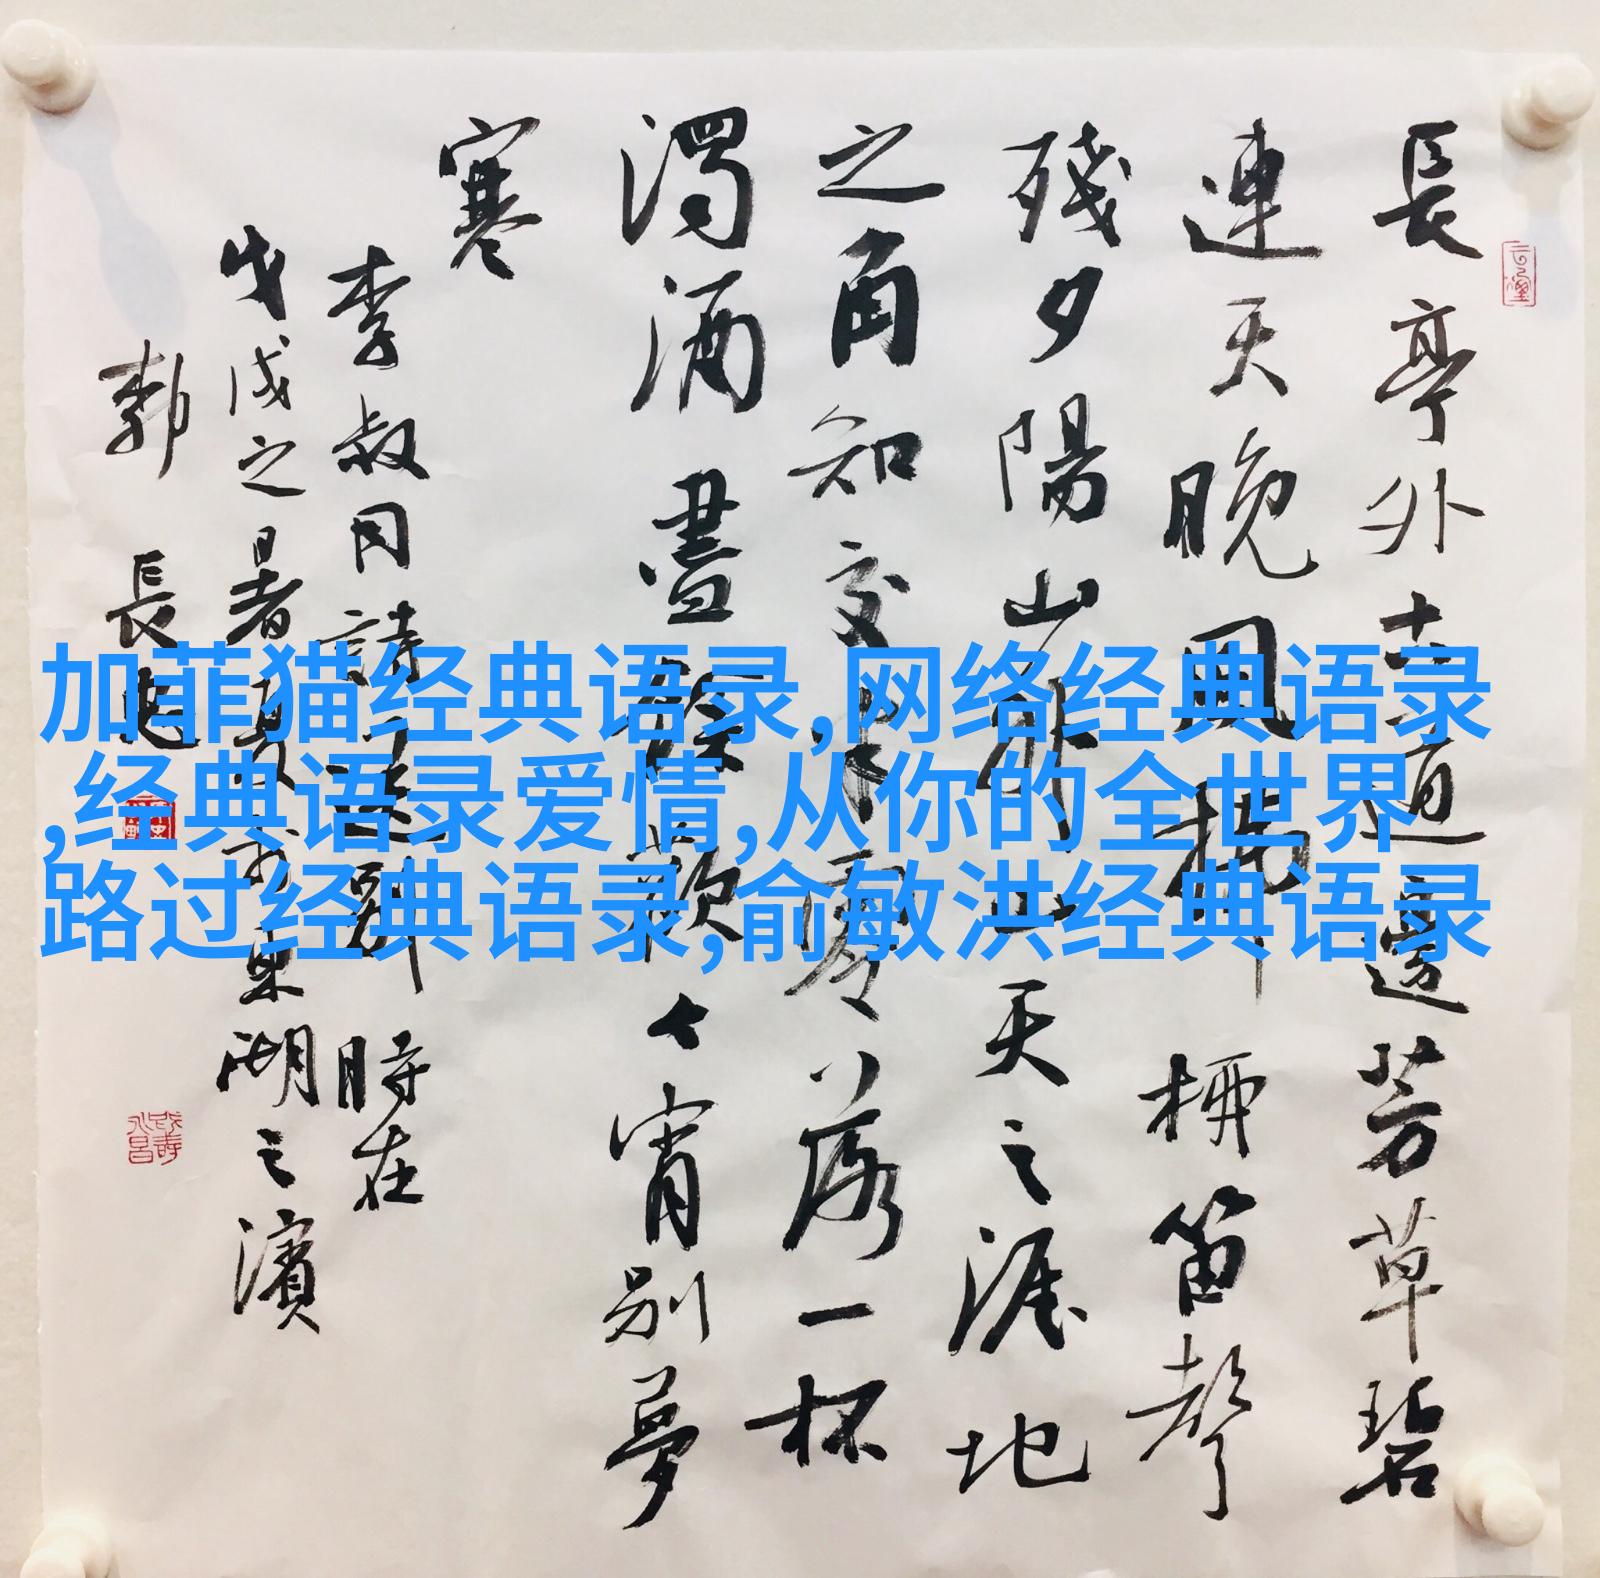 長亭外古道邊芳草碧
連天晚風拂柳笛聲
殘夕陽山外山天之涯地
之角知交半零落一杯
濁酒盡餘歡今宵別夢
寒
李叔同詩 時在
戊戌之暑 東湖之濱
長
加菲猫经典语录,网络经典语录
,经典语录爱情,从你的全世界
路过经典语录,俞敏洪经典语录